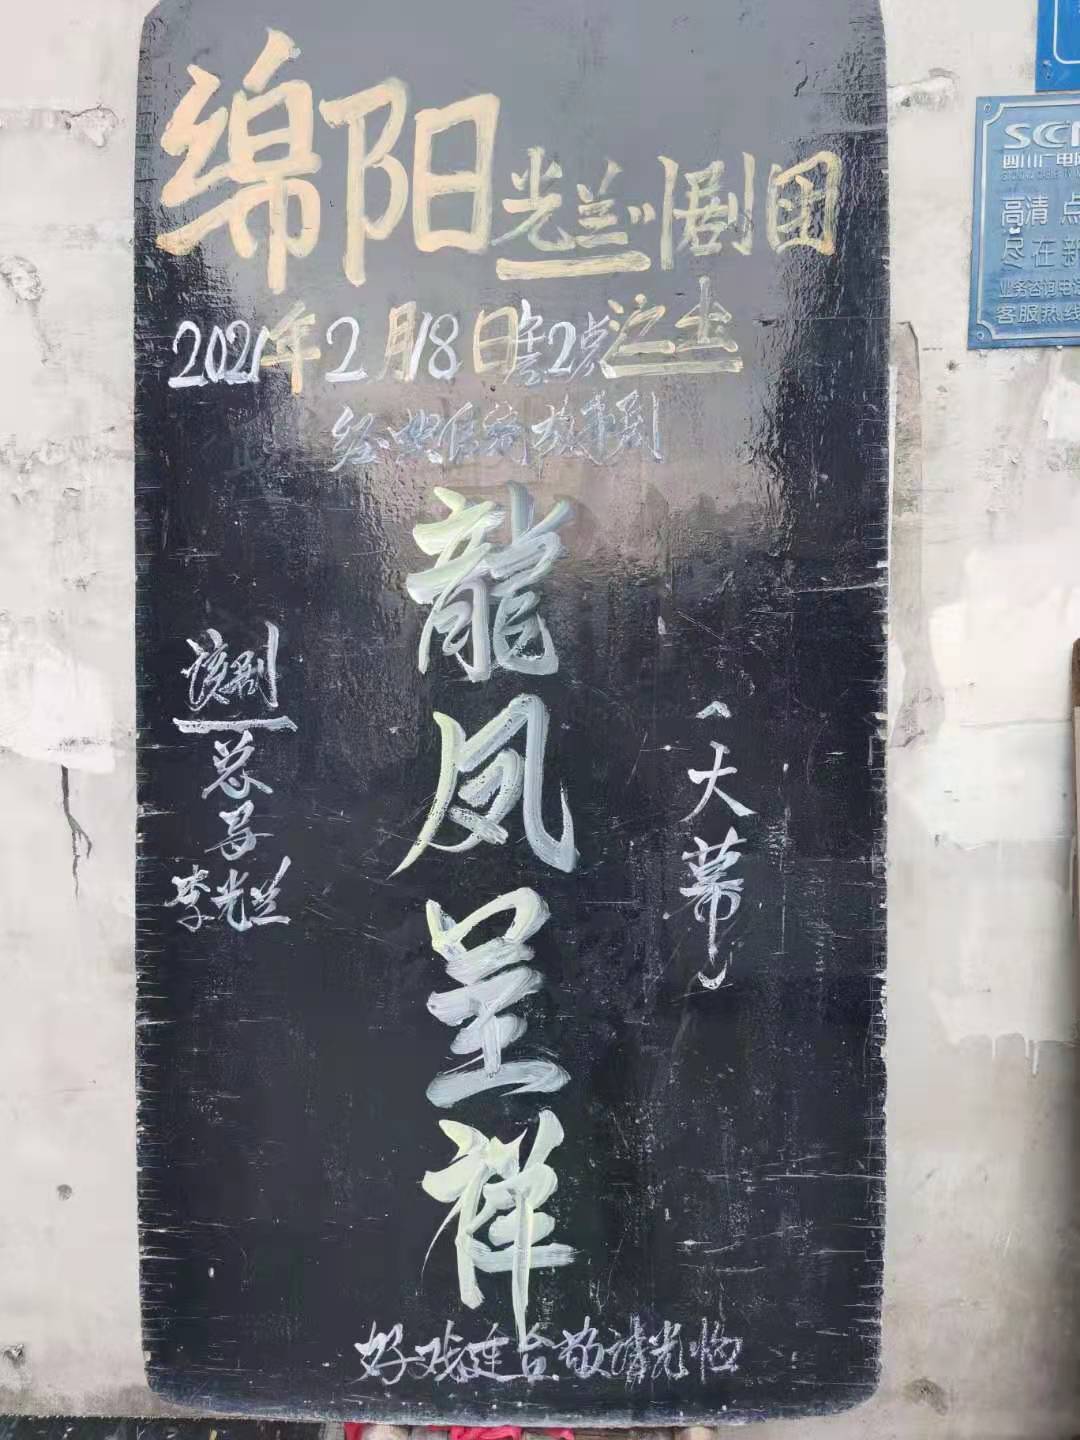 绵阳光兰川剧团
2021年2月18日 2点 演出
经典传奇故事剧
龍凤呈祥
(大幕)
该剧
总导
李光兰
好戏连台敬请光临
SC
四川广电
高清 点
尽在新
业务咨询电
客服热线